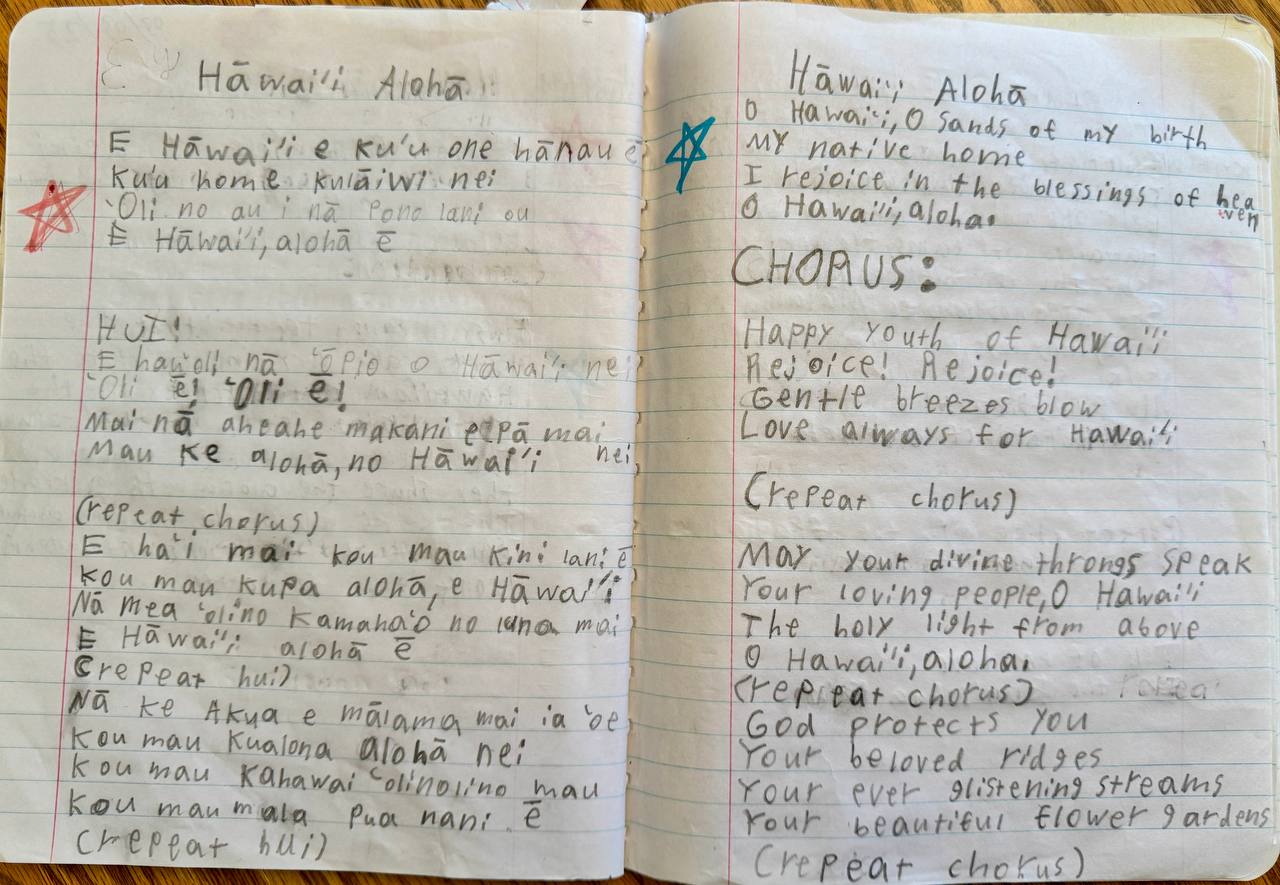 Hāwai'i Alohā
E Hāwai'i e ku'u one hānau ē
Ku'u home kulāiwi nei
'Oli no au i nā Pono lani ou
E Hāwai'i, alohā ē
HUI!
E hau'oli nā 'ōpio o Hāwai'i nei
'Oli ē! 'Oli ē!
Mai nā aheahe makani e pā mai
Mau ke alohā, no Hāwai'i nei
(repeat chorus)
E ha'i mai kou mau kini lani ē
kou mau kupa alohā, e Hāwai'i
Nā mea 'olino Kamaha'o no luna mai
E Hāwai'i alohā ē
(repeat hui)
Nā ke Akua e mālama mai ia 'oe
Kou mau Kualona alohā nei
Kou mau Kahawai 'olinolino mau
Kou mau mala pua nani ē
(repeat hui)
Hāwai'i Alohā
O Hawai'i, O sands of my birth
MY native home
I rejoice in the blessings of heaven
O Hawai'i, aloha.
CHORUS:
Happy youth of Hawai'i
Rejoice! Rejoice!
Gentle breezes blow
Love always for Hawai'i
(repeat chorus)
May your divine throngs speak
Your loving people, O Hawai'i
The holy light from above
O Hawai'i, aloha.
(repeat chorus)
God protects you
Your beloved ridges
Your ever glistening streams
Your beautiful flower gardens
(repeat chorus)